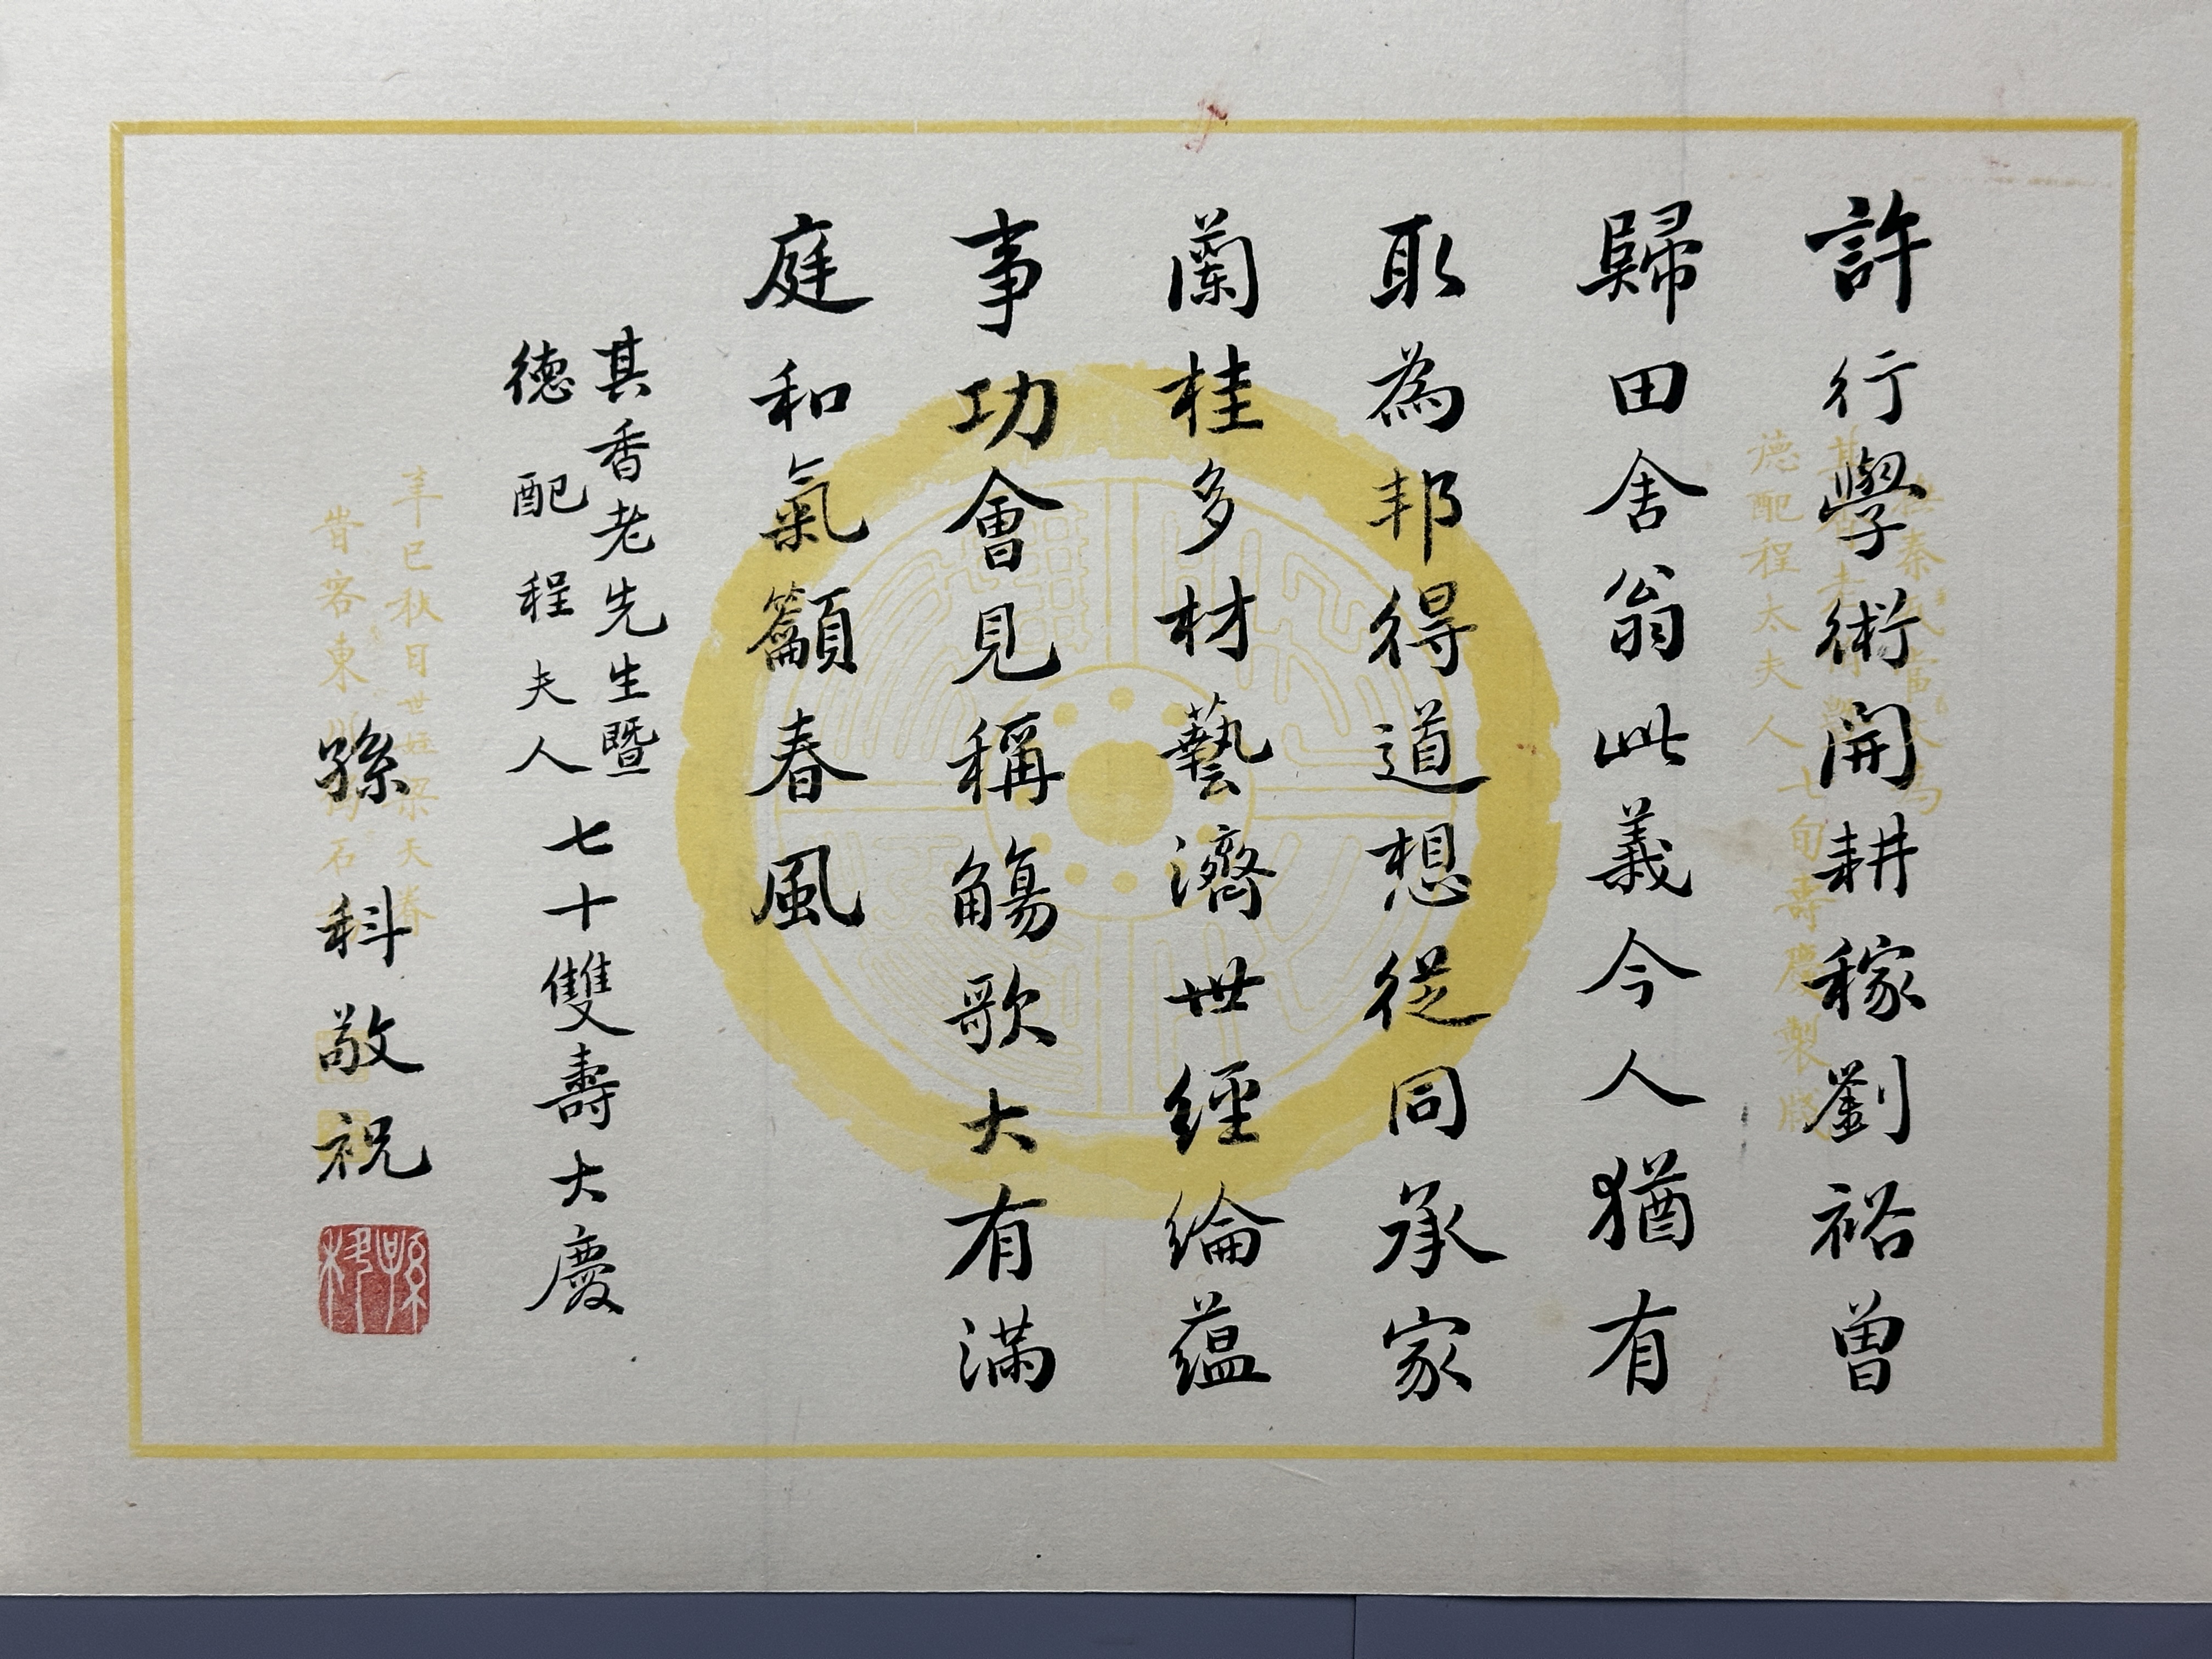 許行學術開耕稼劉裕曾
歸田舍翁此義今人猶有
取為邦得道想從同承家
蘭桂多材藝濟世經綸蘊
事功會見稱觴歌大有滿
庭和氣籲春風
其香老先生暨
德配程夫人
七十雙壽大慶
孫科敬祝
孫科
德配程太夫人七旬壽慶製牋